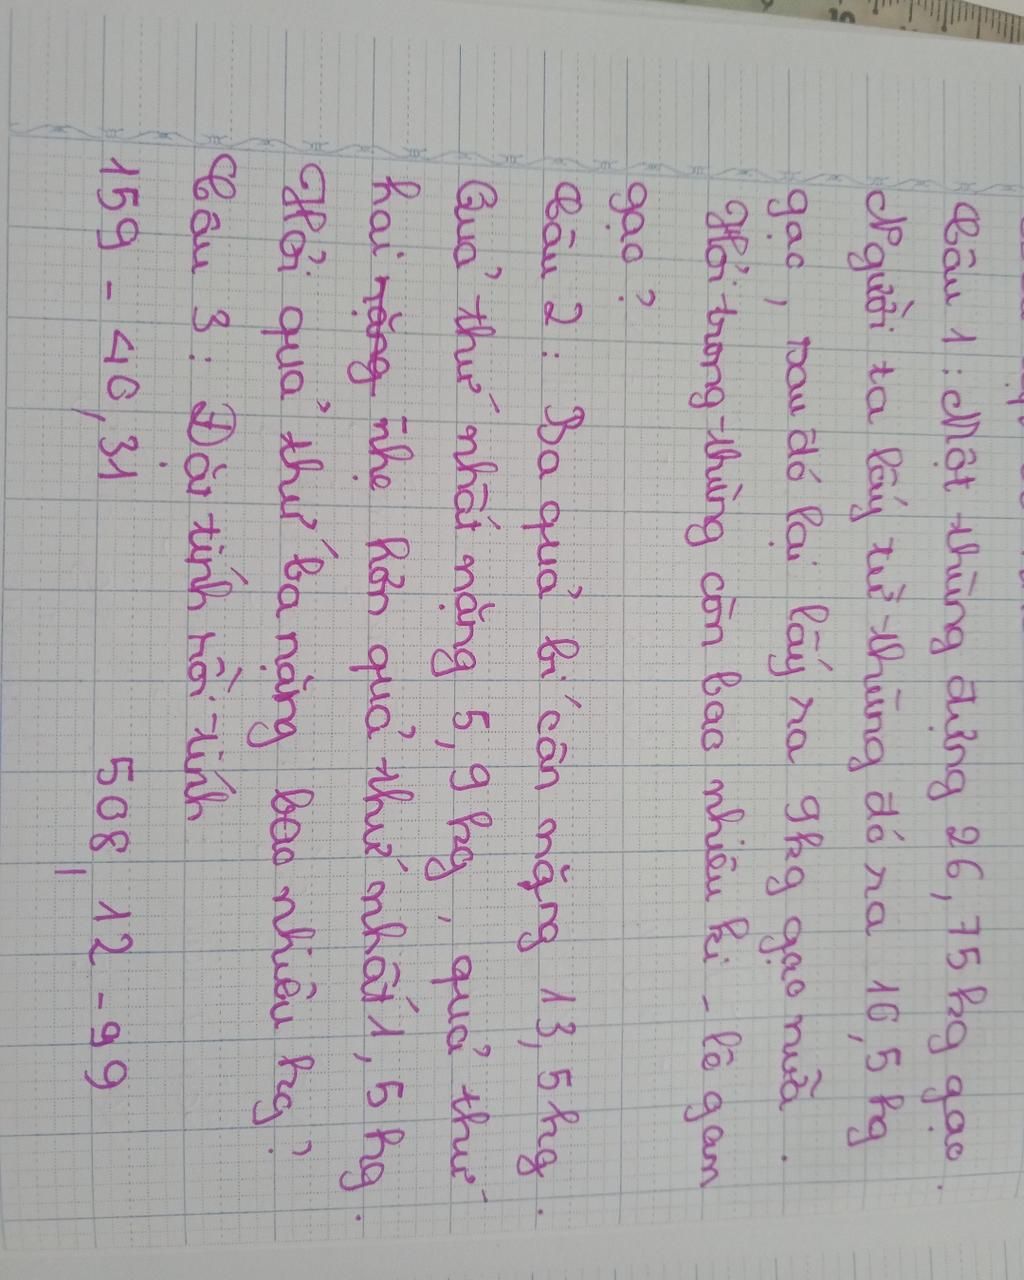 Câu 1: Một thùng đựng 26,75 kg gạo.
Người ta lấy từ thùng đó ra 16,5 kg
gạo, sau đó lại lấy ra 9kg gạo nữa.
Hỏi trong thùng còn bao nhiêu ki-lô gam
gạo?
Câu 2: Ba quả bí cân nặng 13,5 kg.
Quả thứ nhất nặng 5,9 kg, quả thứ
hai nặng nhẹ hơn quả thứ nhất 1,5 kg.
Hỏi quả thứ ba nặng bao nhiêu kg?
Câu 3: Đặt tính rồi tính
159 - 40,31 508,12 - 99
10